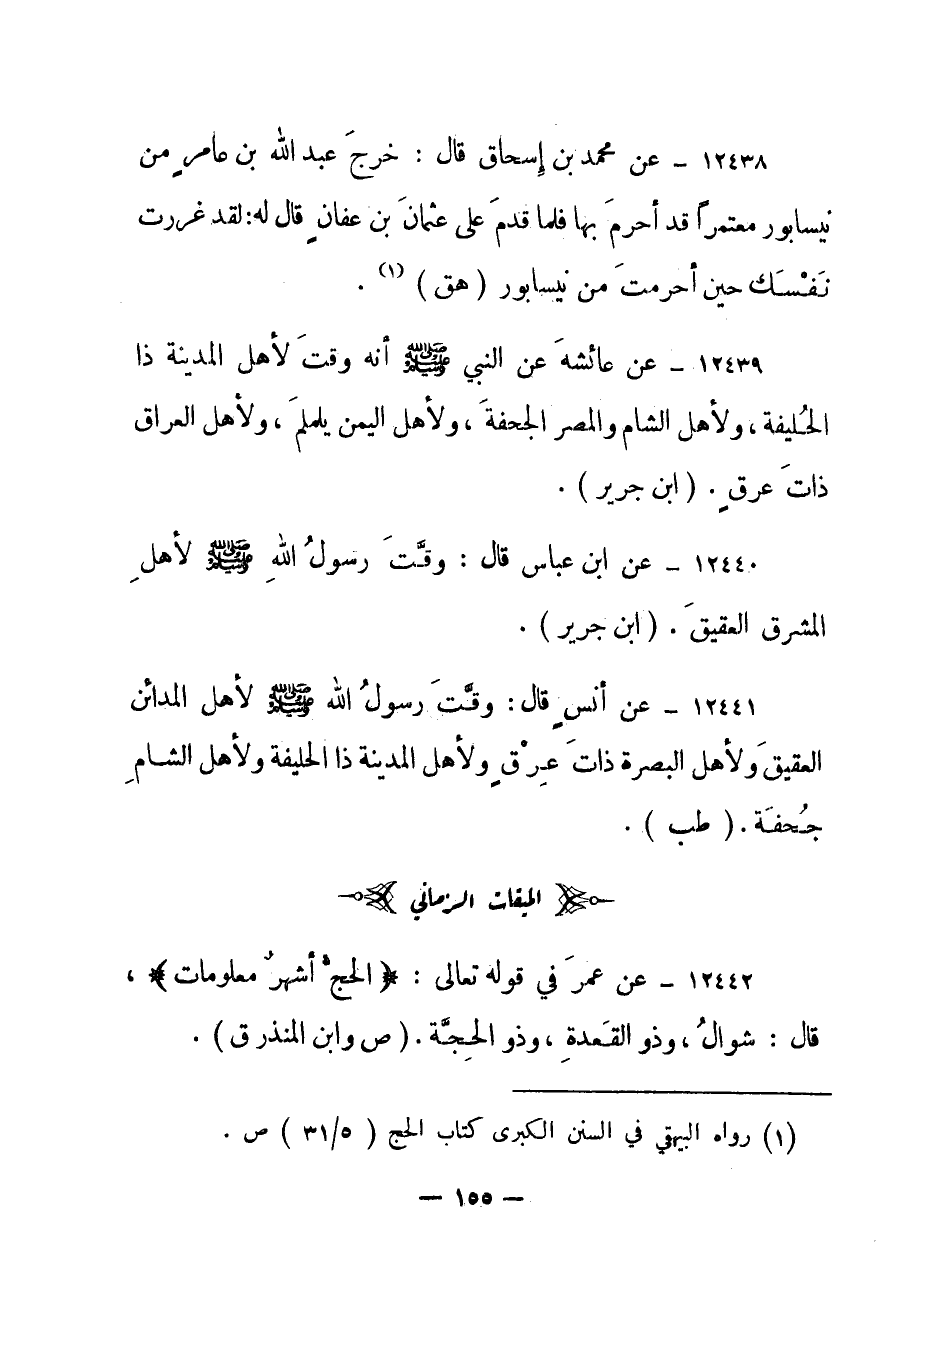 ١٢٤٣٨ - عن محمد بن إسحاق قال : خرجَ عبد الله بن عامرٍ من
نيسابور معتمراً قد أحرمَ بها فلما قدمَ على عثمانَ بن عفانٍ قال له: لقد غررت
نَفْسَك حين أحرمتَ من نيسابور ( هق ) (١) .
١٢٤٣٩ - عن عائشهَ عن النبي ﷺ أنه وقتَ لأهل المدينة ذا
الحُليفة ، ولأهل الشام والمصر الجحفةَ ، ولأهل اليمن يلملمَ ، ولأهل العراق
ذاتَ عرقٍ . ( ابن جرير ) .
١٢٤٤٠ - عن ابن عباس قال : وقَّتَ رسولُ اللهِ ﷺ لأهلِ
المشرق العقيقَ . ( ابن جرير ) .
١٢٤٤١ - عن أنسٍ قال : وقَّتَ رسولُ الله ﷺ لأهل المدائن
العقيقَ ولأهل البصرة ذاتَ عِرْقٍ ولأهل المدينة ذا الحليفة ولأهل الشامِ
جُحفَة . ( طب ) .
الميقات الزماني
١٢٤٤٢ - عن عمرَ في قوله تعالى : ﴿ الحجُّ أشهرٌ معلومات ﴾ ،
قال : شوالُ ، وذو القَعدةِ ، وذو الحِجَّة . ( ص وابن المنذر ق ) .
(١) رواه البيهقي في السنن الكبرى كتاب الحج ( ٣١/٥ ) ص .
— ١٥٥ —